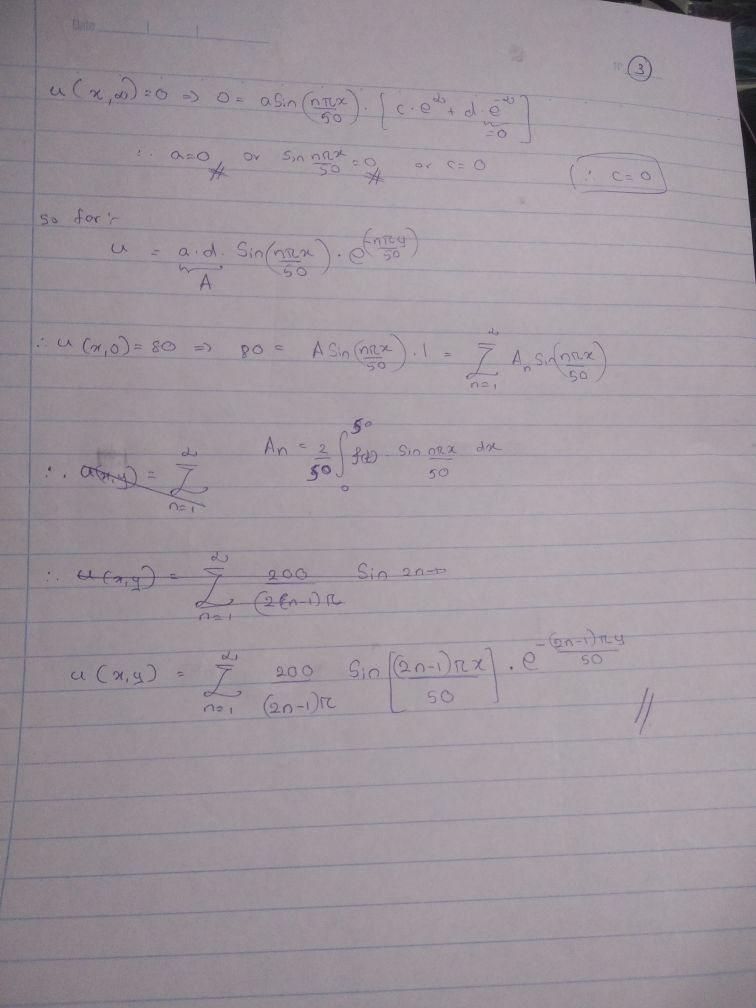 Date
③
u(x,∞)=0 ⇒ 0 = a Sin(nπx/50) · [c·e^∞ + d·e^-∞]
=0
∴ a=0 or sin nπx/50 = 0 or c=0 (∴ c=0
so far:-
u = a·d· Sin(nπx/50) · e^(-nπy/50)
A
∴ u(x,0)=80 ⇒ 80 = A Sin(nπx/50)·1 = ∞ Σ n=1 An Sin(nπx/50)
An = 2/50 ∫ 0 50 f(x) · Sin nπx/50 dx
∴ u(x,y) = ∞ Σ n=1
∴ u(x,y) = ∞ Σ n=1 200/(2n-1)π Sin 2n-
u(x,y) = ∞ Σ n=1 200/(2n-1)π Sin[(2n-1)πx/50] · e^-(2n-1)πy/50 //